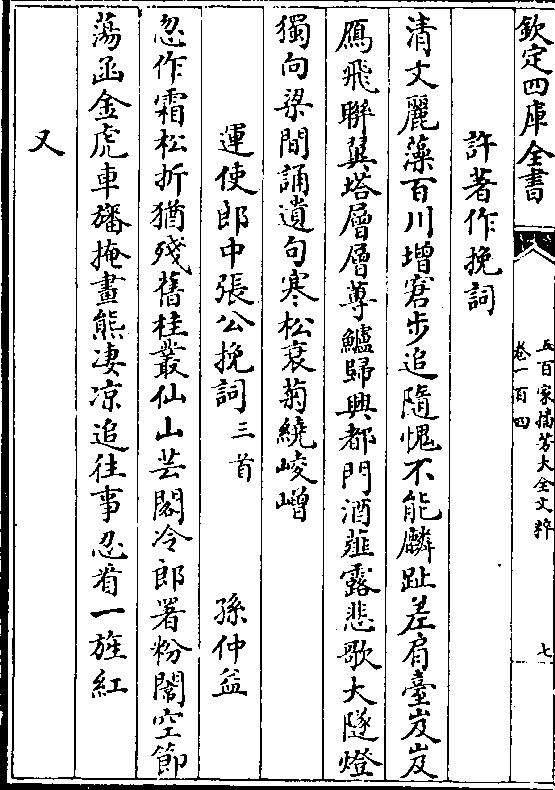 欽定四庫全書
五百家播芳大全文粹
卷一百四
七
許著作挽詞
清文麗藻百川增窘步追隨愧不能麟趾差肩臺岌岌
鴈飛聯翼塔層層蓴鱸歸興都門酒薤露悲歌大隧燈
獨向梁間誦遺句寒松衰菊繞崚嶒
運使郎中張公挽詞三首 孫仲益
忽作霜松折猶殘舊桂叢仙山芸閣冷郎署粉闈空節
蕩函金虎車旛掩畫熊凄凉追往事忍看一旌紅
又